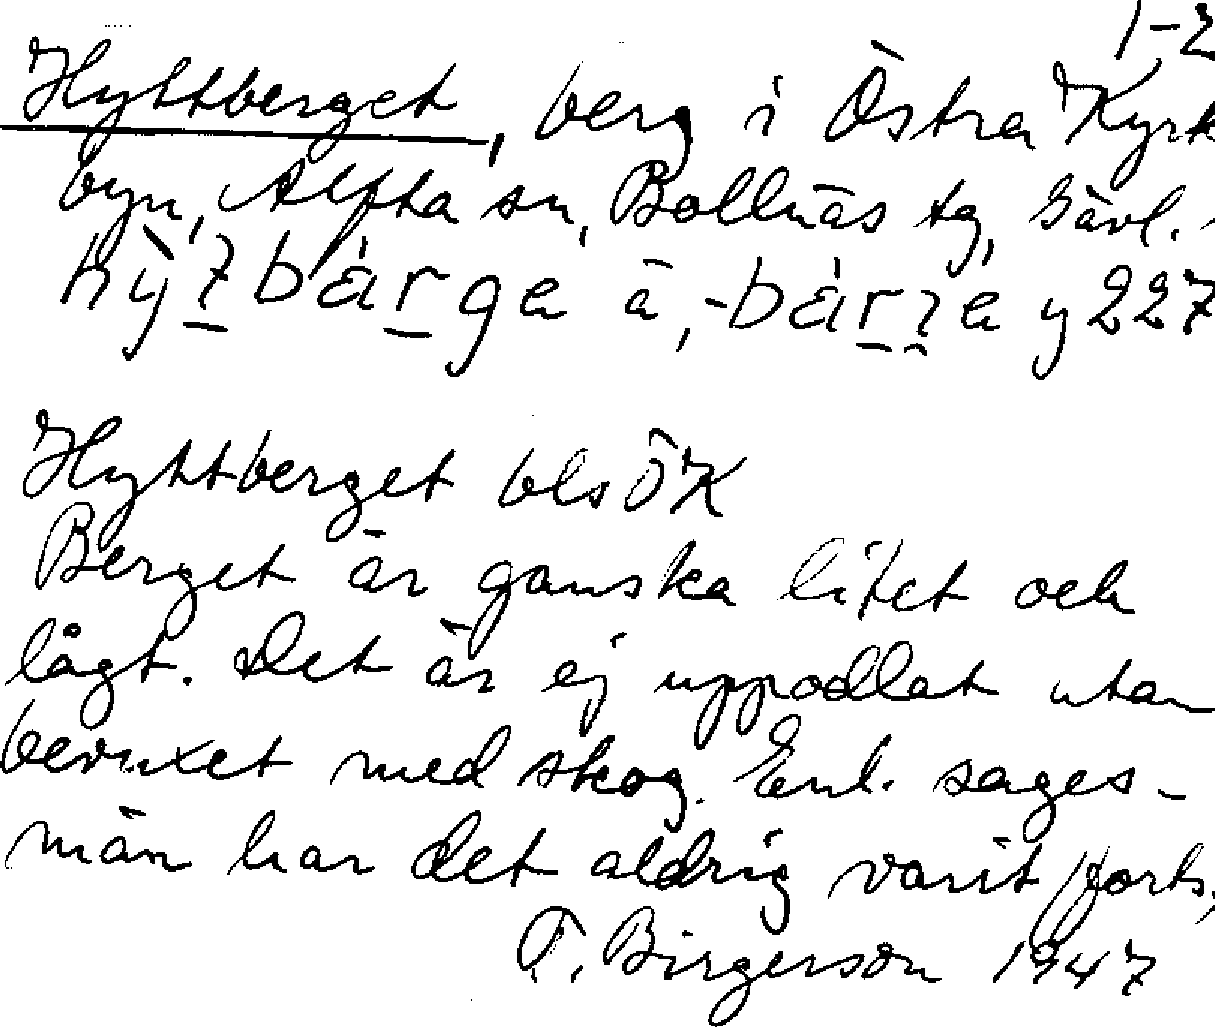 1-2
Hyttberget, berg i Östra Kyrk
byn, Alfta sn, Bollnäs tg, Gävl.
Hyttberget bls ÖK
Berget är ganska litet och
lågt. Det är ej uppodlat utan
bevuxet med skog. Enl. sages-
män har det aldrig varit /forts,
F. Birgerson 1947